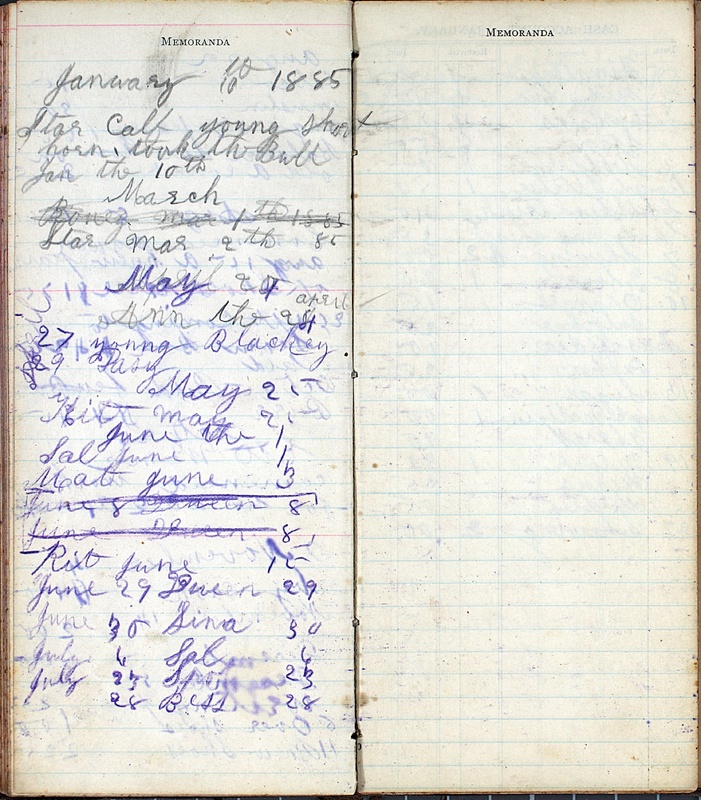 MEMORANDA
January 10th 1885
Star Calf young short
horn. took the Bull
Jan the 10th
March
Roney mar 1th 1885
Star mar 2th 85
May 25
april
Ann the 24
27 young Blackey
29
May 25
Kit may 25
June the 1
Sal June 1
Mat June 3
June 8 Queen 8
June Queen 8
Rit June 15
June 29 Queen 29
June 30 Sina 30
July 6 Sal 6
July 23 Spot 23
28 Bess 28
MEMORANDA